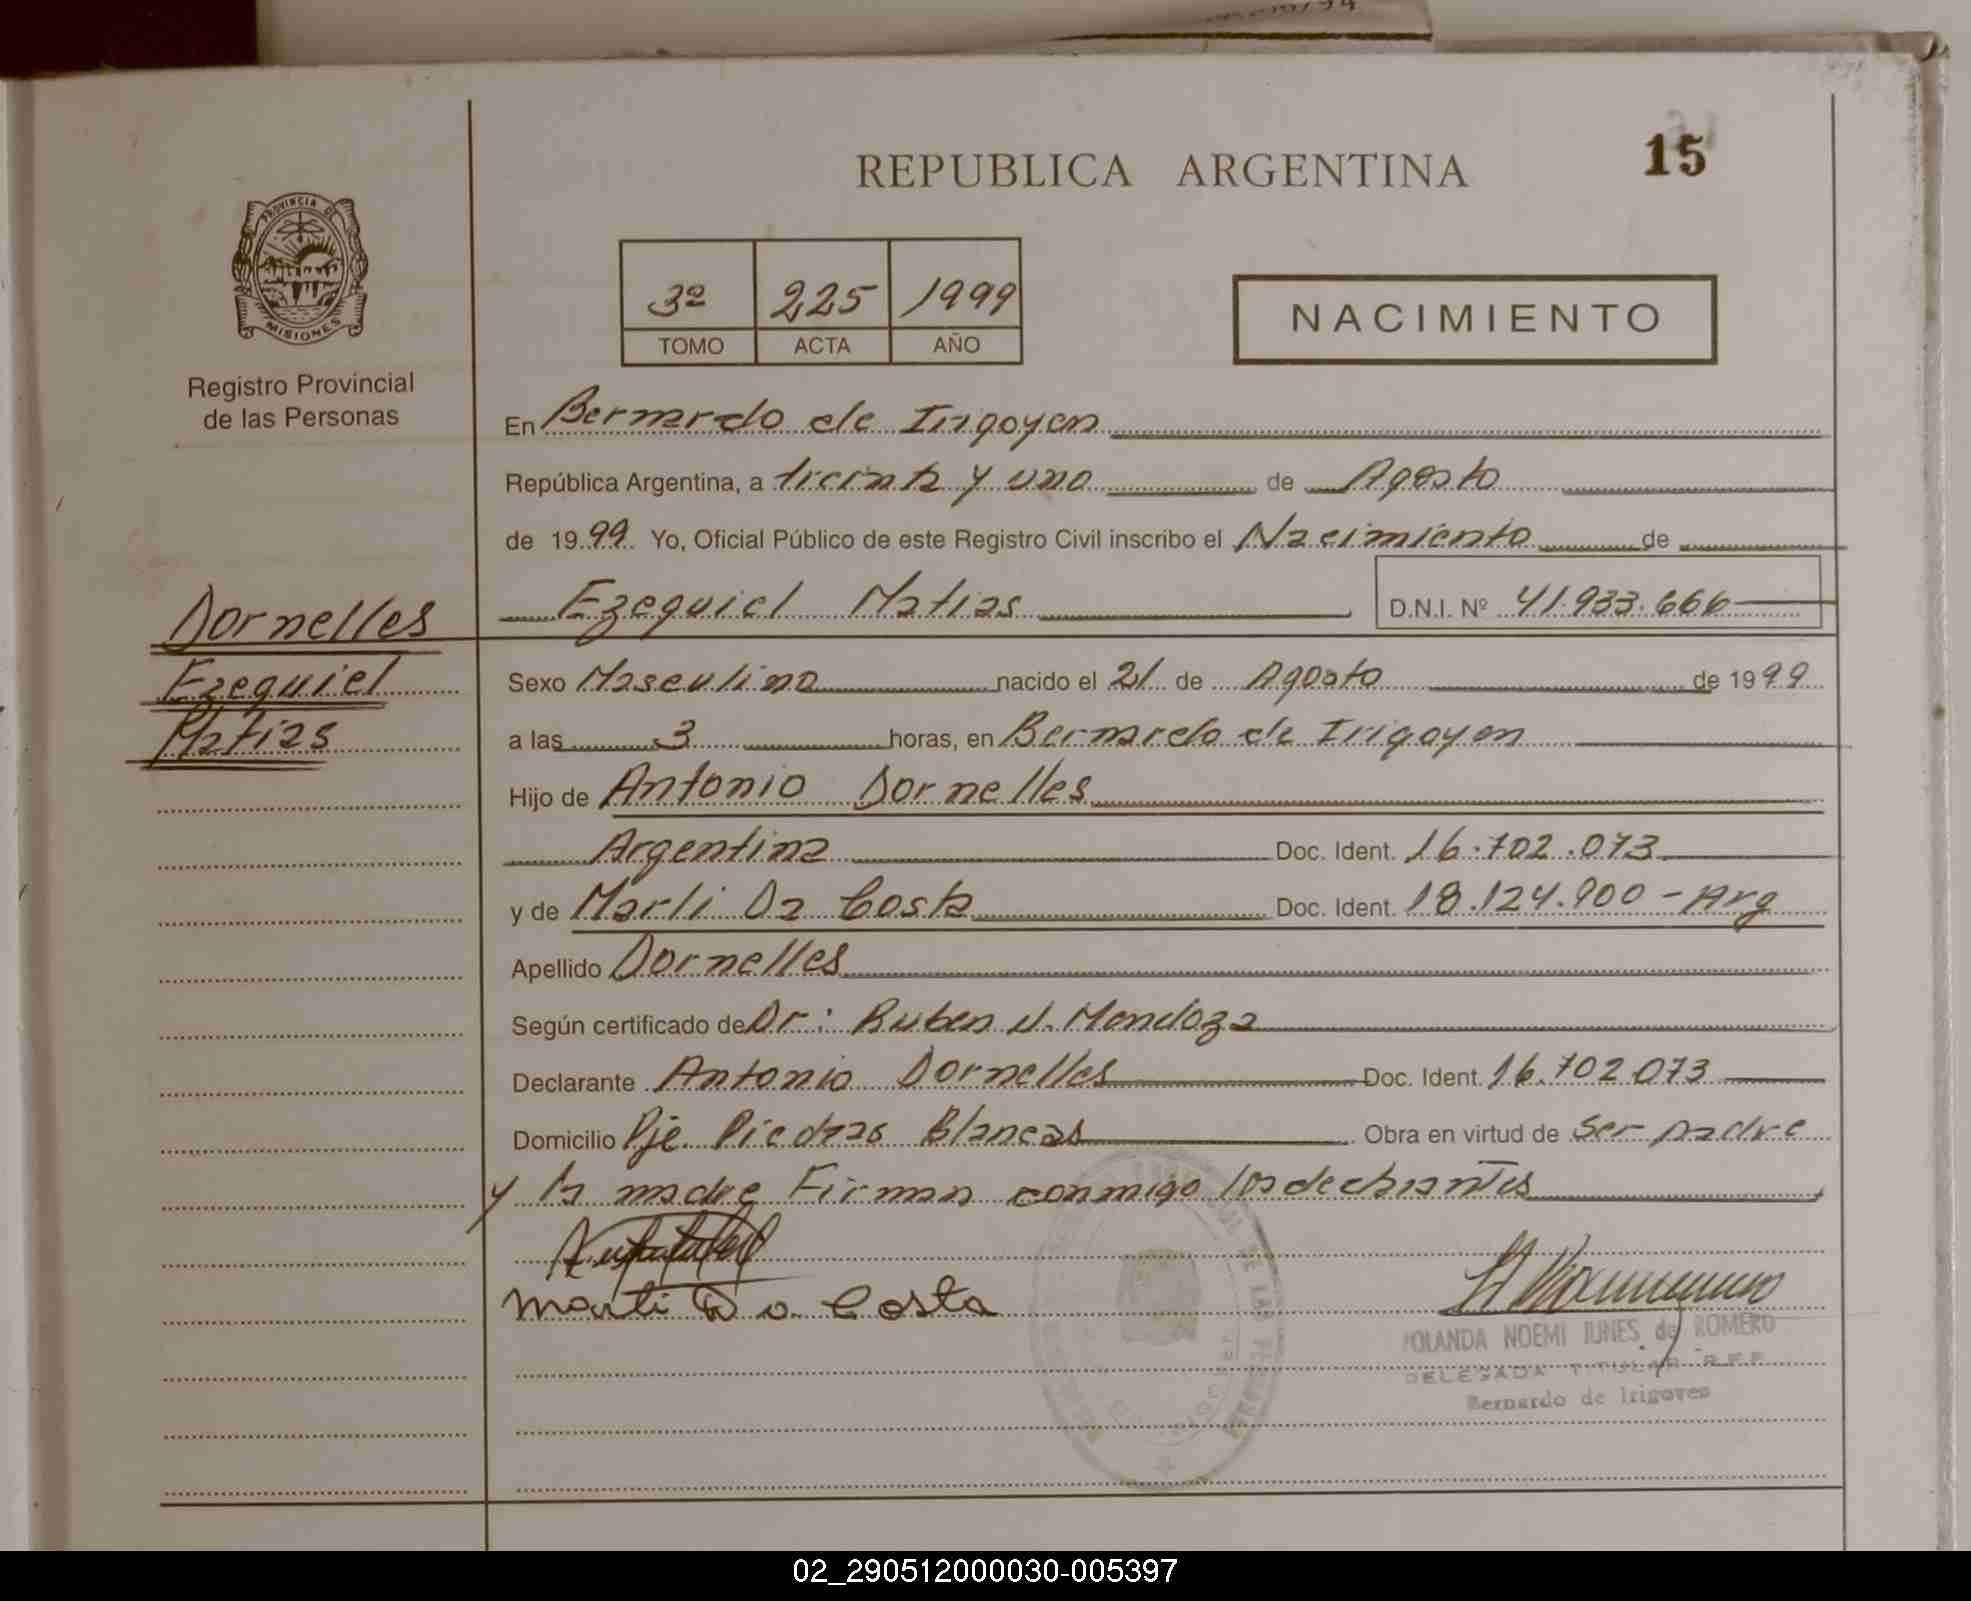 15
REPUBLICA ARGENTINA
PROVINCIA DE
MISIONES
3º 225 1999
TOMO ACTA AÑO
NACIMIENTO
Registro Provincial
de las Personas
En Bernardo de Irigoyen
República Argentina, a treinta y uno de Agosto
de 1999 Yo, Oficial Público de este Registro Civil inscribo el Nacimiento de
Ezequiel Matias D.N.I. Nº 41.933.666
Dornelles
Ezequiel
Matias
Sexo Masculino nacido el 21 de Agosto de 1999
a las 3 horas, en Bernardo de Irigoyen
Hijo de Antonio Dornelles
Argentina Doc. Ident. 16.702.073
y de Marli Da Costa Doc. Ident. 18.124.900 - Arg
Apellido Dornelles
Según certificado de Dr: Ruben N. Mendoza
Declarante Antonio Dornelles Doc. Ident. 16.702.073
Domicilio Pje Piedras Blancas Obra en virtud de ser padre
y la madre Firman conmigo los
Marli Da Costa
YOLANDA NOEMI JUNES de ROMERO
DELEGADA TITULAR
Bernardo de Irigoyen
02_290512000030-005397